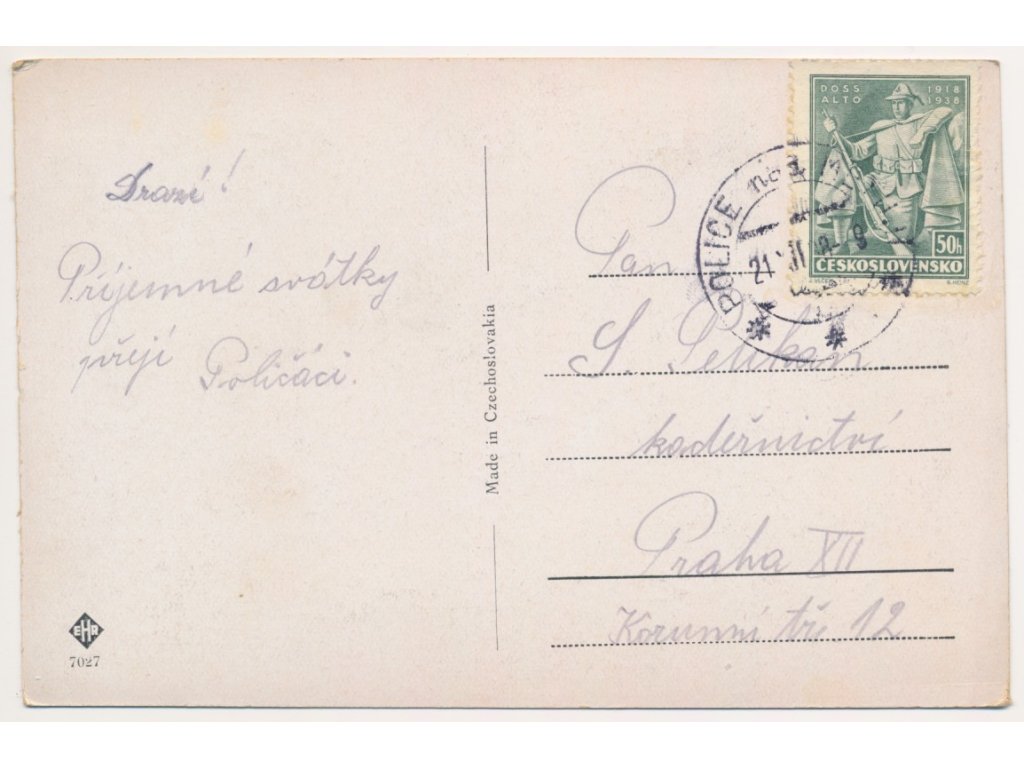 Drazí!
Příjemné svátky
přejí Poličáci.
EHR
7027
Made in Czechoslovakia
DOSS ALTO
1918 1938
50h
ČESKOSLOVENSKO
POLICE nad
21 XII 38 - 9
Pan
S.
kadeřnictví
Praha XII
Korunní tř. 12